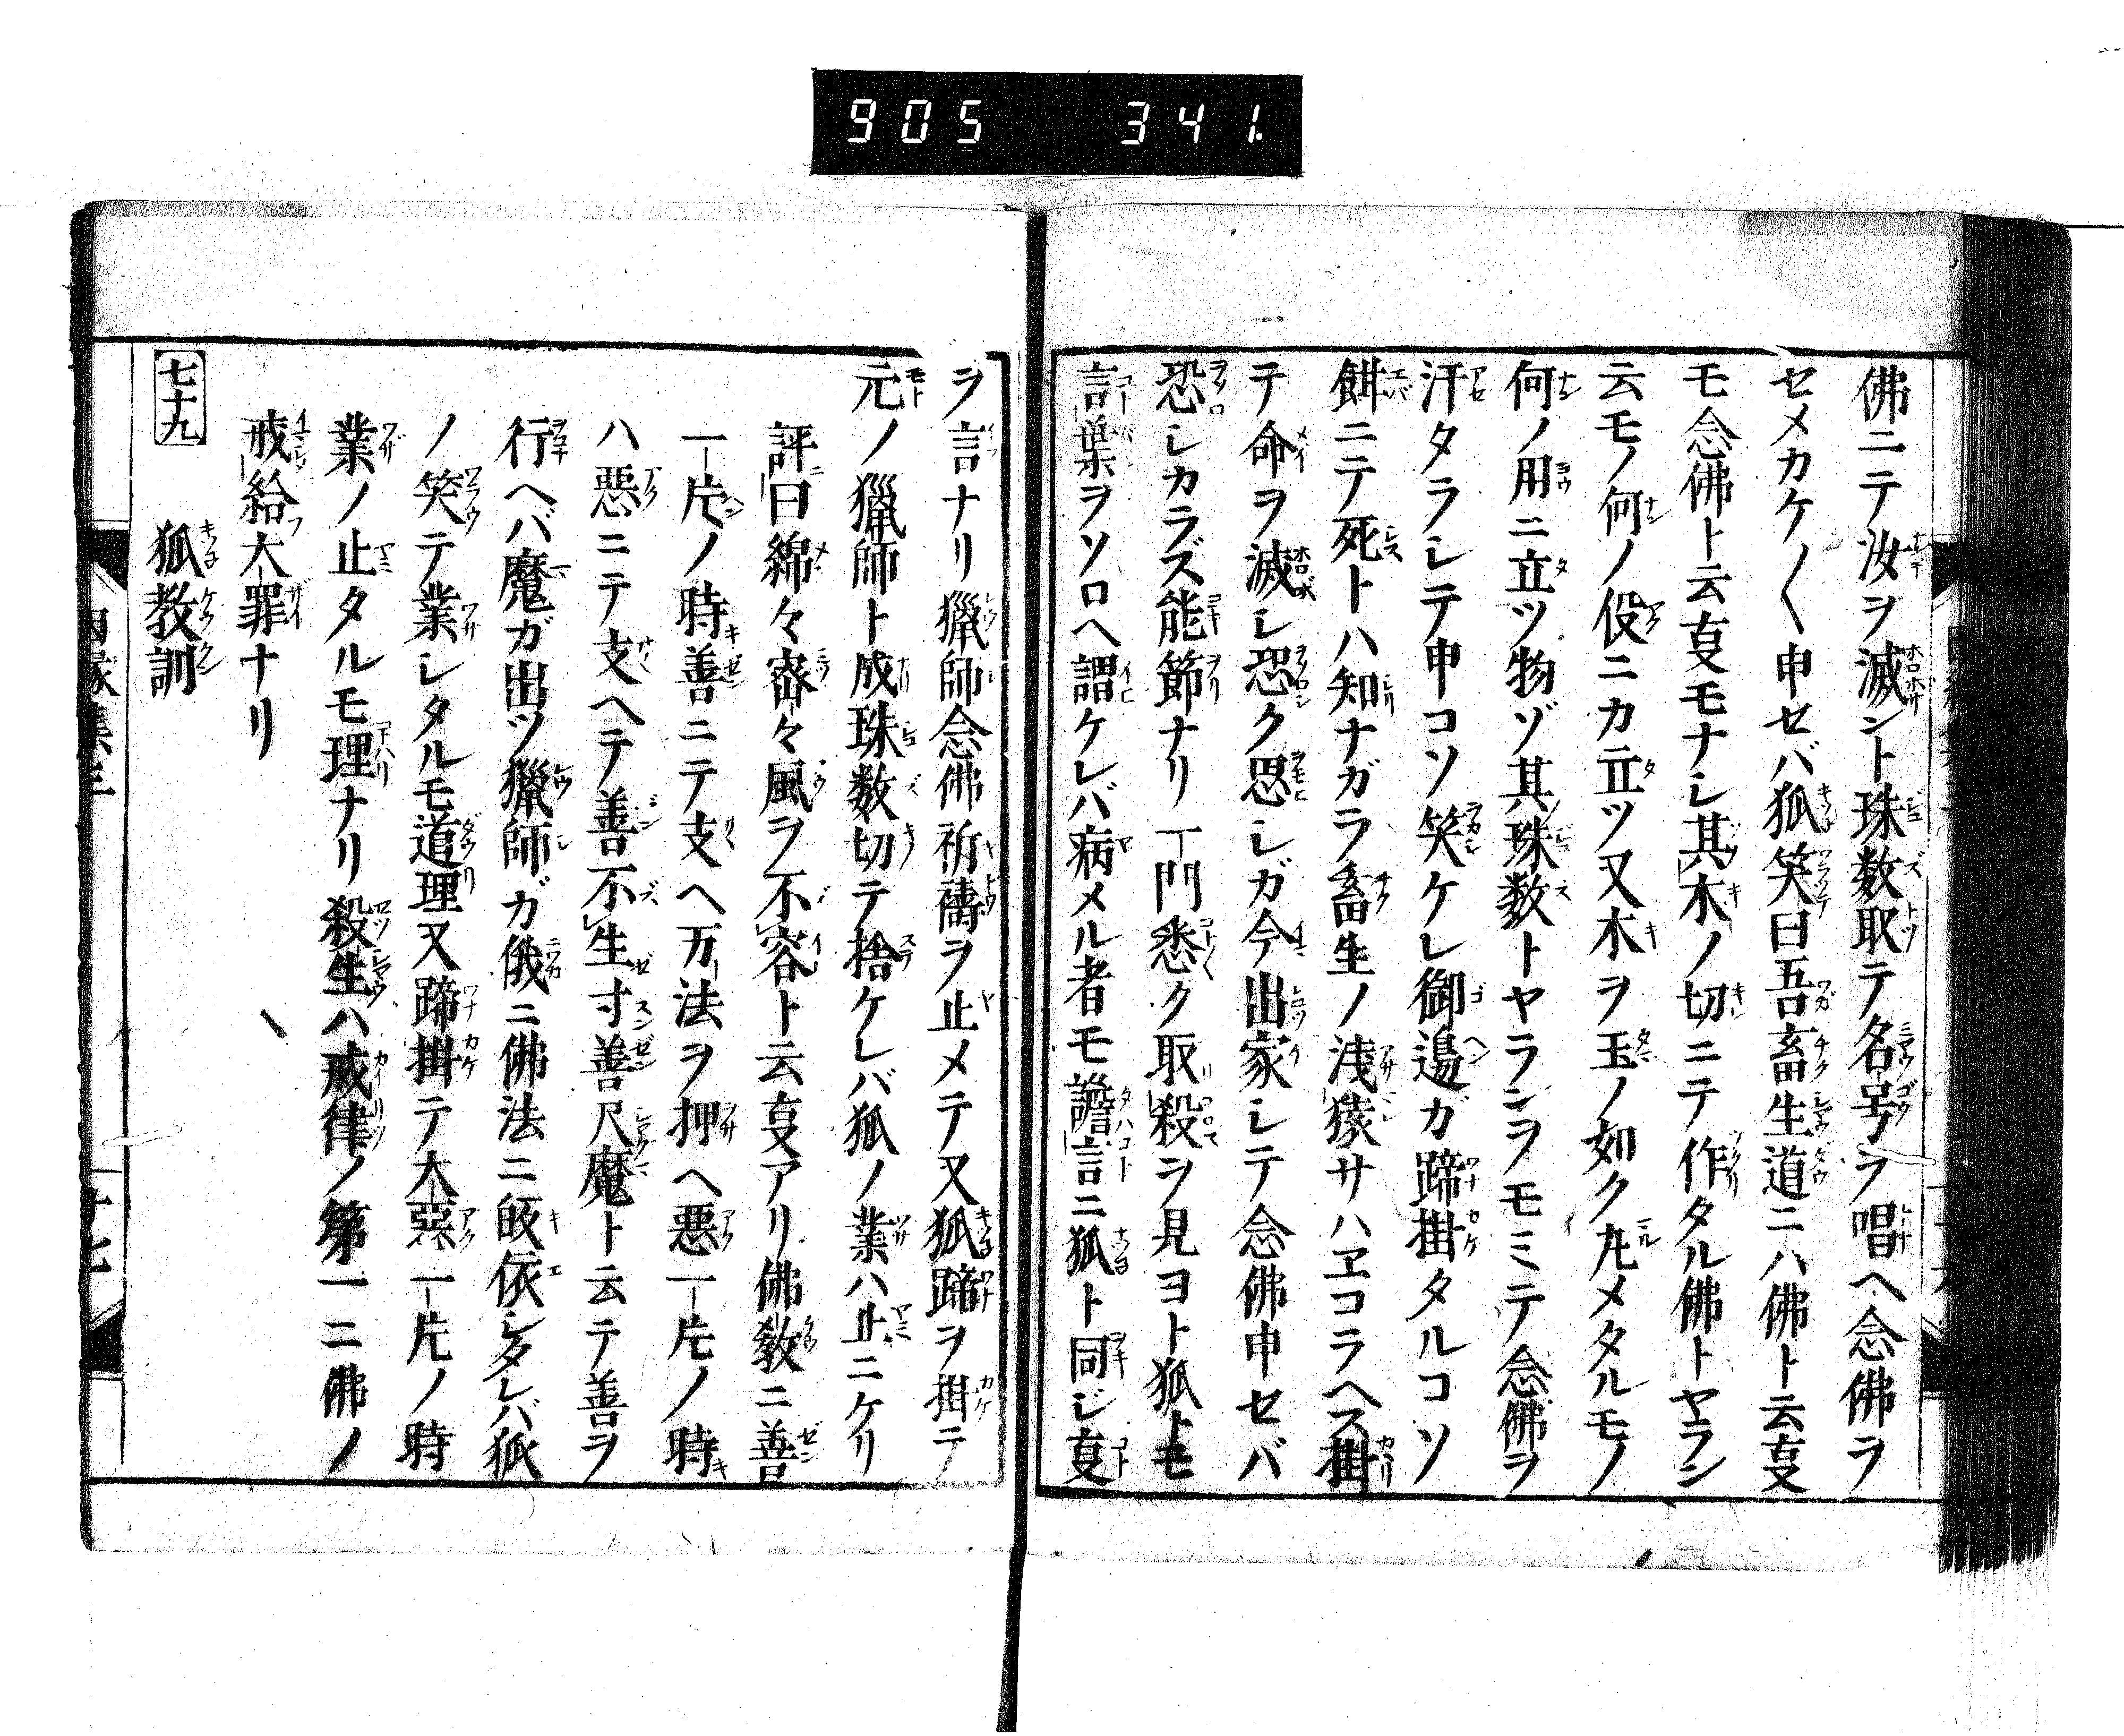 905 341.
佛ニテ汝ヲ滅ント珠数取テ名号ヲ唱ヘ念佛ヲ
セメカケ〱申セバ狐笑曰吾畜生道ニハ佛ト云叓
モ念佛ト云叓モナシ其木ノ切ニテ作タル佛トヤラン
云モノ何ノ役ニカ立ツ又木ヲ玉ノ如ク丸メタルモノ
何ノ用ニ立ツ物ゾ其珠数トヤランヲモミテ念佛ヲ
汗タラシテ申コソ笑ケレ御邊ガ蹄掛タルコソ
餌ニテ死トハ知ナガラ畜生ノ浅猿サハヱコラヘス掛
テ命ヲ滅シ恐ク思シガ今出家シテ念佛申セバ
恐シカラズ能節ナリ一門悉ク取殺ヲ見ヨト狐トモ
言葉ヲソロヘ謂ケレバ病メル者モ譫言ニ狐ト同ジ叓
ヲ言ナリ猟師念佛祈禱ヲ止メテ又狐蹄ヲ掛テ
元ノ猟師ト成珠数切テ捨ケレバ狐ノ業ハ止ニケリ
評曰綿々密々風ヲ不容ト云叓アリ佛教ニ善
一片ノ時善ニテ支ヘ万法ヲ押ヘ悪一片ノ時
ハ悪ニテ支ヘテ善不生寸善尺魔ト云テ善ヲ
行ヘバ魔ガ出ツ猟師ガ俄ニ佛法ニ皈依シタレバ狐
ノ笑テ業シタルモ道理又蹄掛テ大惡一片ノ時
業ノ止タルモ理ナリ殺生ハ戒律ノ第一ニ佛ノ
戒給大罪ナリ
七十九 狐教訓